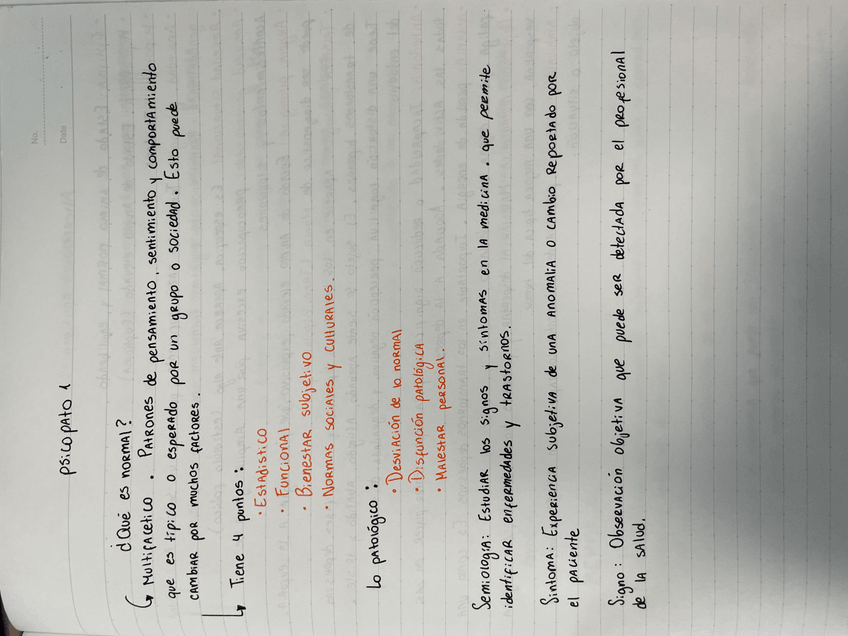 No.
Date
psicopato 1
¿Qué es normal?
↳ Multifacetico. Patrones de pensamiento, sentimiento y comportamiento
que es típico o esperado por un grupo o sociedad. Esto puede
cambiar por muchos factores.
↳ Tiene 4 puntos:
• Estadístico
• Funcional
• Bienestar subjetivo
• Normas sociales y culturales.
Lo patológico:
• Desviación de lo normal
• Disfunción patológica
• Malestar personal.
Semiología: Estudiar los signos y síntomas en la medicina, que permite
identificar enfermedades y trastornos.
Síntoma: Experiencia subjetiva de una anomalía o cambio reportado por
el paciente
Signo: Observación objetiva que puede ser detectada por el profesional
de la salud.